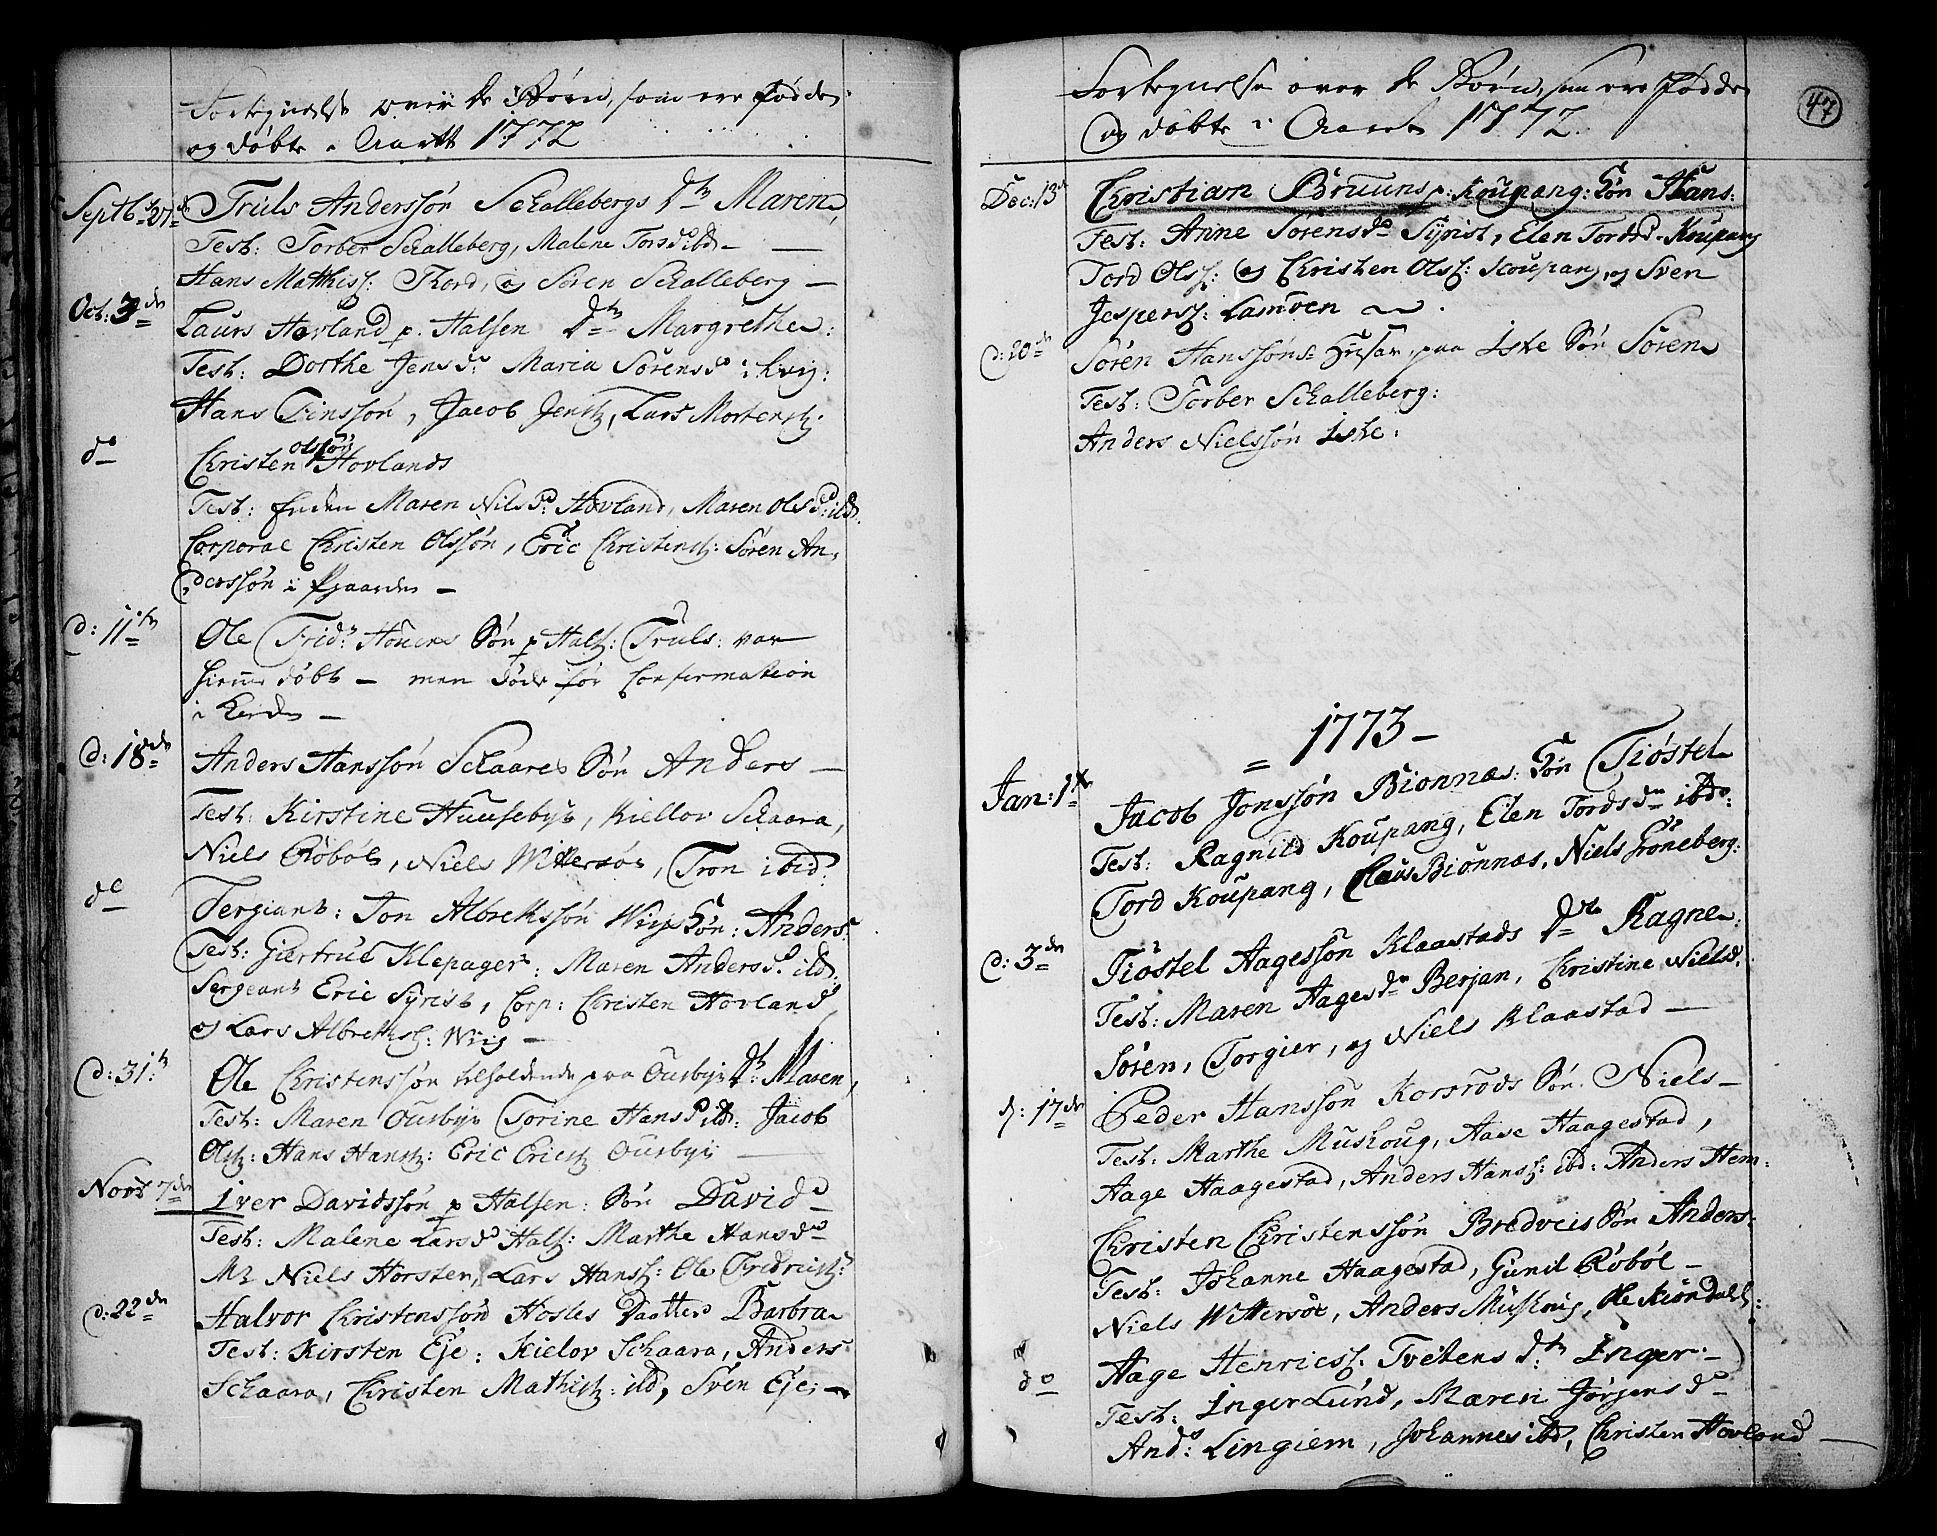 Fortegnelse over de Börn, som ere fødde
og døbte i Aaret 1772
Septb: 27de Truls Anderssön Schallebergs Dtr Maren,
Test: Torber Schalleberg, Malene Torsd ibd —
Hans Matthisz: Thord, og Sören Schalleberg —
Oct: 3de Laurs Hovland p. Halsen Dtr Margrethe:
Test: Dorthe Jensd: Maria Sörensd:
Hans Finssön, Jacob Jensz, Lars Mortensz:
do Christen Olssön Hovlands
Test: Maren Nilsd. Hovland, Maren Olsd: ibd:
Corporal Christen Olssön, Eric Christensz: Sören An-
derssön i
d: 11te Ole Frid: Sön p Halsz: Truls: var
hiemme döbt — men döde för Confirmation
i Kirken —
d: 18de Anders Hanssön Schaares Sön Anders —
Test: Kirstine Huuseby, Kiellov Schaara,
Niels Röböl, Niels Wittersöe, Tron ibid:
do Sergiant: Jon Albrektssön Wiigs Sön: Anders:
Test: Giertrud Klepager: Maren Andersd. ibd:
Sergeant Eric Syrist, Corp: Christen Hovland
og Lars Albrethsz: Wiig —
d: 31te Ole Christenssön tilholdende paa Ousbye Dtr: Maren,
Test: Maren Ousbye Torine Hansd ibd: Jacob
Olsz: Hans Hansz: Eric Ericsz Ousbye —
Novb 7de Iver Davidssön p Halsen: Sön David
Test: Malene Larsd Halsz: Marthe Hansd
Mr Niels Horsten, Lars Hansz: Ole Fredricsz:
d: 22de Halvor Christenssöns Hosles Daatter Barbra
Test: Kirsten Eje: Kielov Schaara, Anders
Schaara, Christen Mathisz: ibd, Sven Eje; —
47
Fortegnelse over de Börn, som ere fødde
og døbte i Aaret 1772.
Dec: 13de Christian Bruuns p: Koupang: Sön Hans:
Test: Anne Sörensd Syrist, Elen Tordsd. Koupang
Tord Olsz: og Christen Olsz: Koupang, og Sven
Jespersz: Lamöen
d: 20de Sören Hanssöns Huser, paa Iske Sön Sören
Test: Torber Schalleberg:
Anders Nielssön Iske:
= 1773 —
Jan: 1te Jacob Jonssön Bionnæs: Sön Tiöstel
Test: Ragnild Koupang, Elen Tordsdr ibd:
Tord Koupang, Claus Bionnæs, Niels Gröneberg:
d: 3de Tiöstel Aagessön Klaastads Dtr Ragne:
Test: Maren Aagesdr Berjan, Christine Nielsd.
Sören, Torgier, og Niels Klaastad —
d: 17de Peder Hanssön Korsröds Sön: Niels —
Test: Marthe Muskoug, Aase Haagestad,
Aage Haagestad, Anders Hansz: ibd: Anders Hem:
Christen Christenssön Bredveis Sön Anders:
Test: Johanne Haagestad, Gunil Röböl —
Niels Wittersöe, Anders Muskoug, Ole Kiöndahl:
do Aage Henricsz. Tvetens Dtr: Inger: —
Test: Inger Lund, Maren Jörgensd
And: Lingiem, Johannes ibd, Christen Hovland —